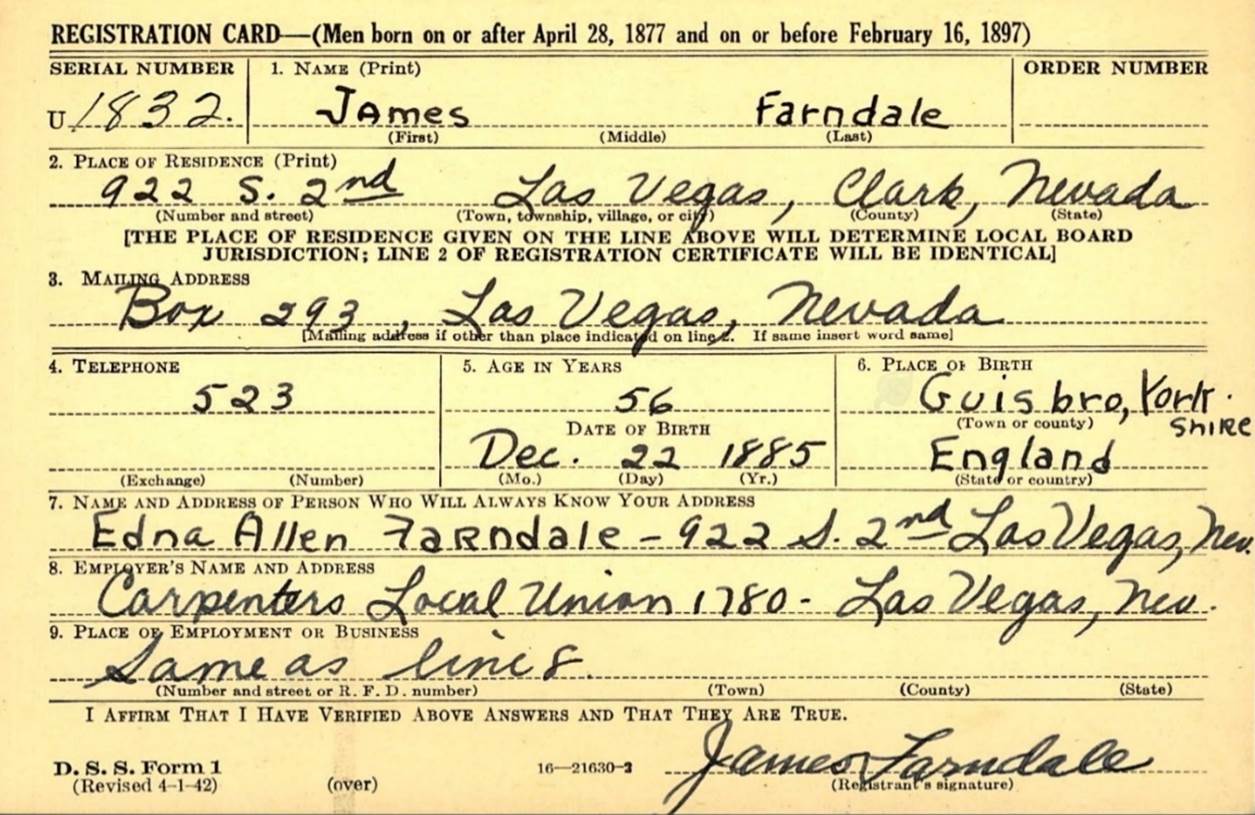 REGISTRATION CARD—(Men born on or after April 28, 1877 and on or before February 16, 1897)
SERIAL NUMBER 1. NAME (Print) ORDER NUMBER
U 1832. James Farndale
(First) (Middle) (Last)
2. PLACE OF RESIDENCE (Print)
922 S. 2nd Las Vegas, Clark, Nevada
(Number and street) (Town, township, village, or city) (County) (State)
[THE PLACE OF RESIDENCE GIVEN ON THE LINE ABOVE WILL DETERMINE LOCAL BOARD
JURISDICTION; LINE 2 OF REGISTRATION CERTIFICATE WILL BE IDENTICAL]
3. MAILING ADDRESS
Box 293, Las Vegas, Nevada
[Mailing address if other than place indicated on line 2. If same insert word same]
4. TELEPHONE 5. AGE IN YEARS 6. PLACE OF BIRTH
523 56 Guisbro, York.
DATE OF BIRTH (Town or county) shire
Dec. 22 1885 England
(Exchange) (Number) (Mo.) (Day) (Yr.) (State or country)
7. NAME AND ADDRESS OF PERSON WHO WILL ALWAYS KNOW YOUR ADDRESS
Edna Allen Farndale - 922 S. 2nd Las Vegas, Nev.
8. EMPLOYER'S NAME AND ADDRESS
Carpenters Local Union 1780 - Las Vegas, Nev.
9. PLACE OF EMPLOYMENT OR BUSINESS
Same as line 8.
(Number and street or R. F. D. number) (Town) (County) (State)
I AFFIRM THAT I HAVE VERIFIED ABOVE ANSWERS AND THAT THEY ARE TRUE.
James Farndale
D. S. S. Form 1 16—21630-2
(Revised 4-1-42) (over) (Registrant's signature)